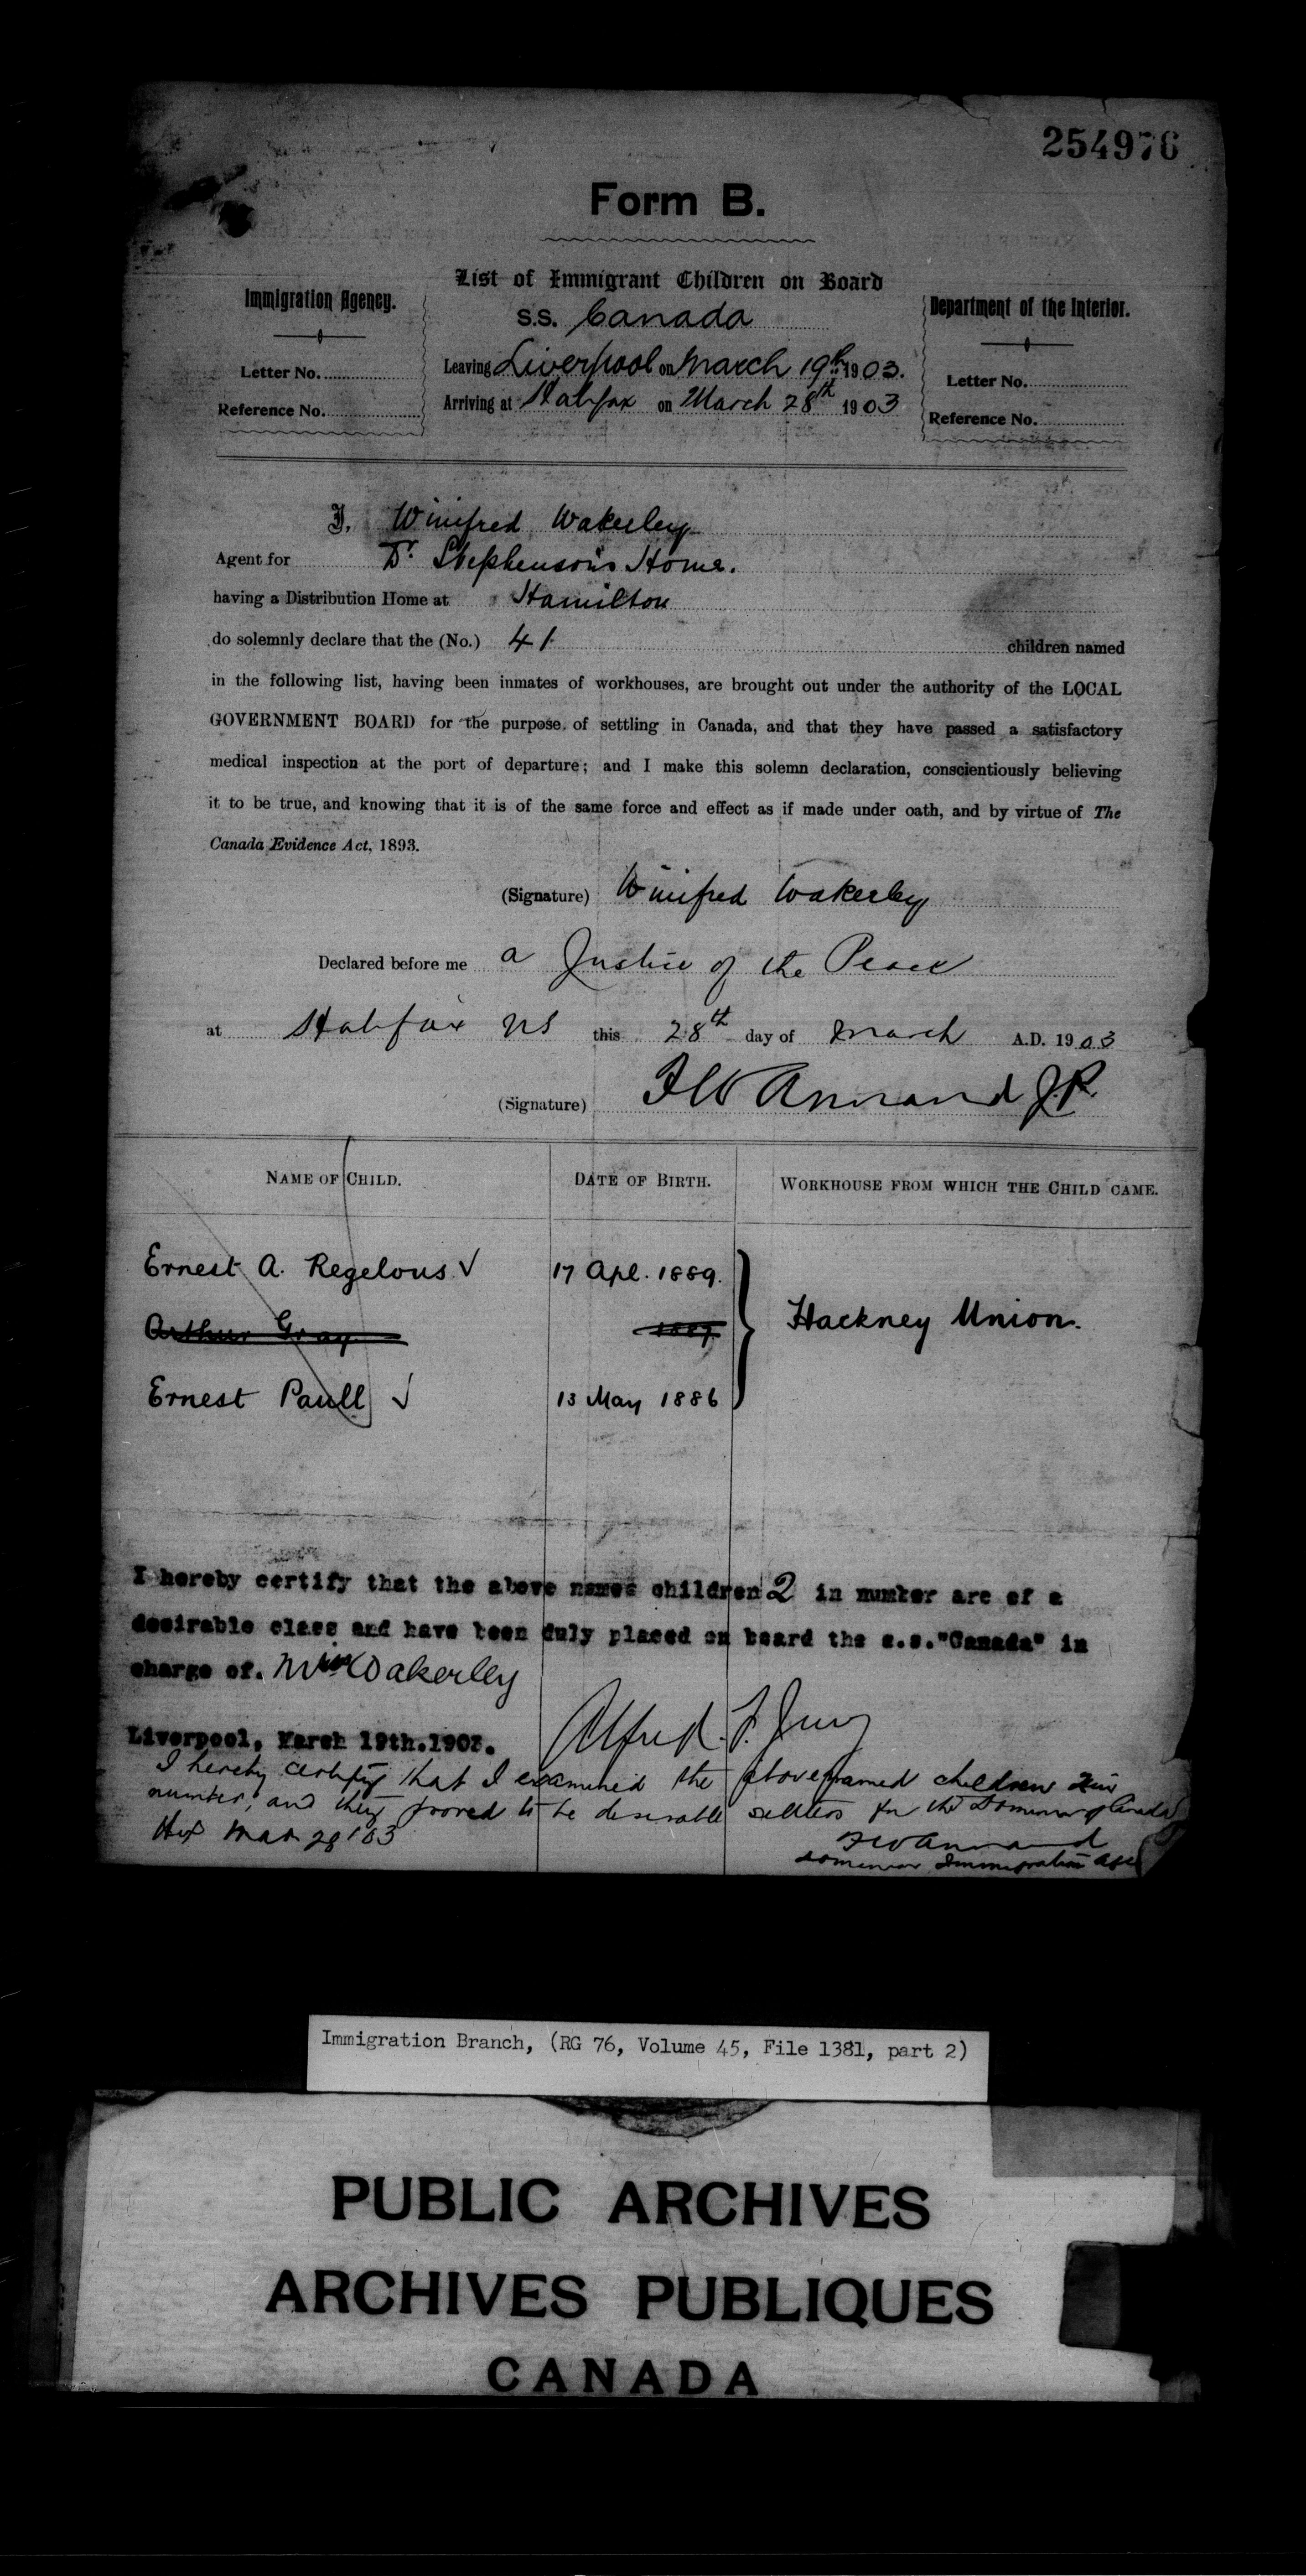 254976
Form B.
List of Immigrant Children on Board
Immigration Agency.
Letter No.
Reference No.
S.S. Canada
Leaving Liverpool on March 19th 1903.
Arriving at Halifax on March 28th 1903
Department of the Interior.
Letter No.
Reference No.
I, Winifred Wakerley
Agent for Dr. Stephenson's Home.
having a Distribution Home at Hamilton
do solemnly declare that the (No.) 41 children named
in the following list, having been inmates of workhouses, are brought out under the authority of the LOCAL
GOVERNMENT BOARD for the purpose of settling in Canada, and that they have passed a satisfactory
medical inspection at the port of departure; and I make this solemn declaration, conscientiously believing
it to be true, and knowing that it is of the same force and effect as if made under oath, and by virtue of The
Canada Evidence Act, 1893.
(Signature) Winifred Wakerley
Declared before me a Justice of the Peace
at Halifax NS this 28th day of March A.D. 1903
(Signature) FW Annand J.P.
NAME OF CHILD. DATE OF BIRTH. WORKHOUSE FROM WHICH THE CHILD CAME.
Ernest A. Regelous ✓ 17 Apl. 1889.
Arthur Gray 1887 Hackney Union.
Ernest Paull ✓ 13 May 1886
I hereby certify that the above names children 2 in number are of a
desirable class and have been duly placed on board the s.s."Canada" in
charge of. Miss Wakerley
Liverpool, March 19th.1903. Alfred. F. Jury
I hereby certify that I examined the above named children in
number, and they proved to be desirable settlers for the Dominion of Canada
Hfx Mar 28/03 FW Annand
Dominion Immigration Agt
Immigration Branch, (RG 76, Volume 45, File 1381, part 2)
PUBLIC ARCHIVES
ARCHIVES PUBLIQUES
CANADA